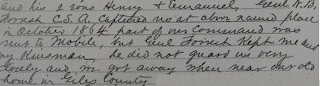 and his 2 sons Henry & Emanuel, Genl N.B.
Forrest C.S.A. Captured us at above named place
in October 1864 part of our Command was
sent to Mobile, but Genl Forrest Kept me and
my Kinsman, he did not guard us very
closely and we got away when near our old
home in Giles County